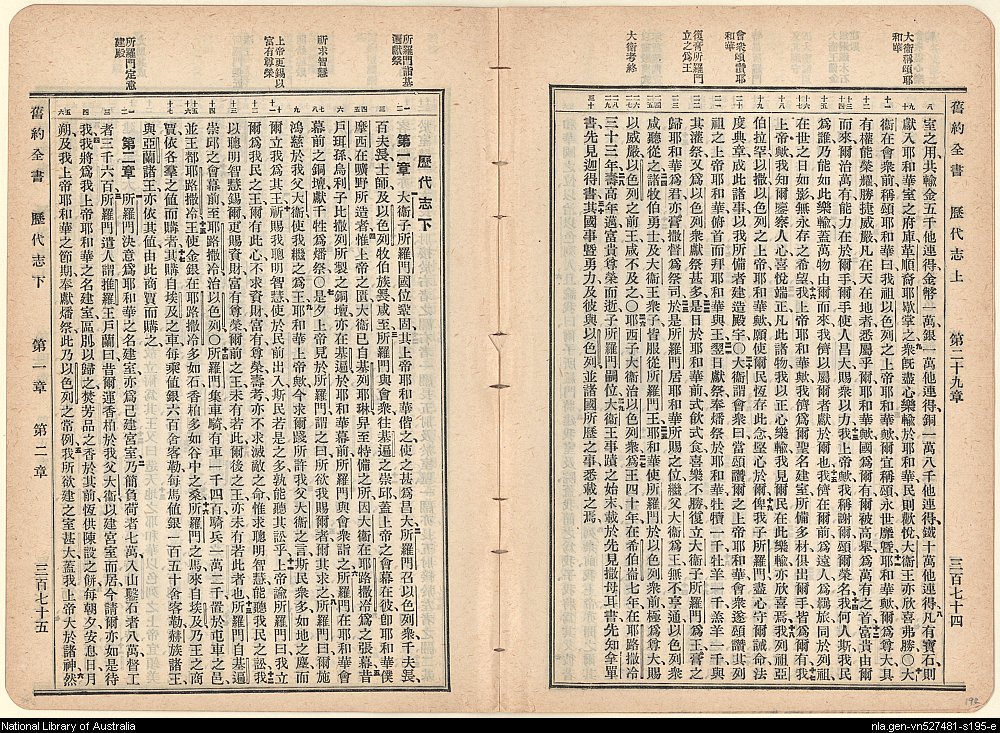 舊約全書 歷代志上 第二十九章 三百七十四
大衛稱頌耶和華
會衆頌讚耶和華
復膏所羅門立之爲王
大衛考終
室之用其輸金五千他連得金幣一萬銀一萬他連得銅一萬八千他連得鐵十萬他連得凡有寶石則
獻入耶和華室之府庫革順裔耶歇掌之衆旣盡心樂輸於耶和華民則歡悅大衛王亦欣喜弗勝○大
衛在會衆前稱頌耶和華曰我祖以色列之上帝耶和華歟爾宜稱頌永世靡曁耶和華歟爾尊大具
有權能榮耀勝捷威嚴凡在天在地者悉屬乎爾耶和華歟國爲爾有爾被高舉爲萬有之首富貴由爾
而來爾治萬有能力在於爾手爾手使人昌大賜衆以力我上帝歟我稱謝爾頌爾榮名我何人斯我民
爲誰乃能如此樂輸蓋萬物由爾而來我儕以屬爾者獻於爾也我儕在爾前爲遠人爲羈旅同於列祖
在世之日如影無永存之希望我上帝耶和華歟我儕爲爾聖名建室所備多材俱出爾手皆爲爾有我
上帝歟我知爾鑒察人心喜悅端正凡此諸物我以正心樂輸我見爾民在此樂輸亦欣喜焉我列祖亞
伯拉罕以撒以色列之上帝耶和華歟願使爾民恆存此念堅心於爾俾我子所羅門盡心守爾誡命法
度典章成此諸事以我所備者建造殿宇○大衛謂會衆曰當頌讚爾之上帝耶和華會衆遂頌讚其列
祖之上帝耶和華俯首而拜耶和華與王翌日獻祭奉燔祭於耶和華牲犢一千牡羊一千羔羊一千與
其灌祭又爲以色列衆獻祭甚多是日於耶和華前式飲式食喜樂不勝復立大衛子所羅門爲王膏之
歸耶和華爲君亦膏撒督爲祭司於是所羅門居耶和華所賜之位繼父大衛爲王無不亨通以色列衆
咸聽從之諸牧伯勇士及大衛王衆子皆服從所羅門王耶和華使所羅門於以色列衆前極爲尊大賜
以威嚴以色列之前王咸不及之○耶西子大衛治以色列衆爲王四十年在希伯崙七年在耶路撒冷
三十三年壽高年邁富貴尊榮而逝子所羅門嗣位大衛王事蹟之始末載於先見撒母耳書先知拿單
書先見迦得書其國事曁勇力及彼與以色列並諸國所歷之事悉載之焉
舊約全書 歷代志下 第一章 第二章 三百七十五
所羅門詣基遍獻祭
祈求智慧
上帝更錫以富有尊榮
所羅門定意建殿
歷代志下
第一章 大衛子所羅門國位鞏固其上帝耶和華偕之使之甚爲昌大所羅門召以色列衆千夫長
百夫長士師及以色列牧伯族長咸至所羅門與會衆往基遍之崇邱蓋上帝之會幕在彼卽耶和華僕
摩西在曠野所造者惟上帝之匱大衛已自基列耶琳舁至特備之所因大衛在耶路撒冷爲之張幕昔
戶珥孫烏利子比撒列所製之銅壇亦在基遍於耶和華幕前所羅門與會衆詣之所羅門在耶和華會
幕前之銅壇獻千牲爲燔祭○是夕上帝見於所羅門謂之曰所欲我賜爾者爾其求之所羅門曰爾施
鴻慈於我父大衛使我繼之爲王耶和華上帝歟今求爾踐所許我父大衛之言斯民衆多如地之塵而
爾立我爲其王祈賜我聰明智慧使於民前出入斯民若是之多孰能聽其訟乎上帝諭所羅門曰我立
爾爲我民之王爾有此心不求資財富有尊榮壽考亦不求滅敵之命惟求聰明智慧能聽我民之訟我
以聰明智慧錫爾更賜資財富有尊榮爾前之王未有若此爾後之王亦未有若此者也所羅門自基遍
崇邱之會幕前至耶路撒冷治以色列○所羅門集車騎有車一千四百騎兵一萬二千置於屯車之邑
並王都耶路撒冷王使金銀在耶路撒冷多如石香柏多如谷中之桑所羅門之馬來自埃及乃王之商
賈依各羣之値而購者其購自埃及之車每乘値銀六百舍客勒每馬値銀一百五十舍客勒赫族諸王
與亞蘭諸王亦依其値由此商賈而購之
第二章 所羅門決意爲耶和華之名建室亦爲己建宮室乃簡負荷者七萬入山鑿石者八萬督工
者三千六百所羅門遣人謂推羅王戶蘭曰昔爾運香柏於我父大衛以建宮室而居今請爾亦如是待
我我將爲我上帝耶和華之名建室區別以歸之焚芳品之香於其前恆供陳設之餅每朝夕安息日月
朔及我上帝耶和華之節期奉獻燔祭此乃以色列之常例我所欲建之室甚大蓋我上帝大於諸神然
192
National Library of Australia
nla.gen-vn527481-s195-e